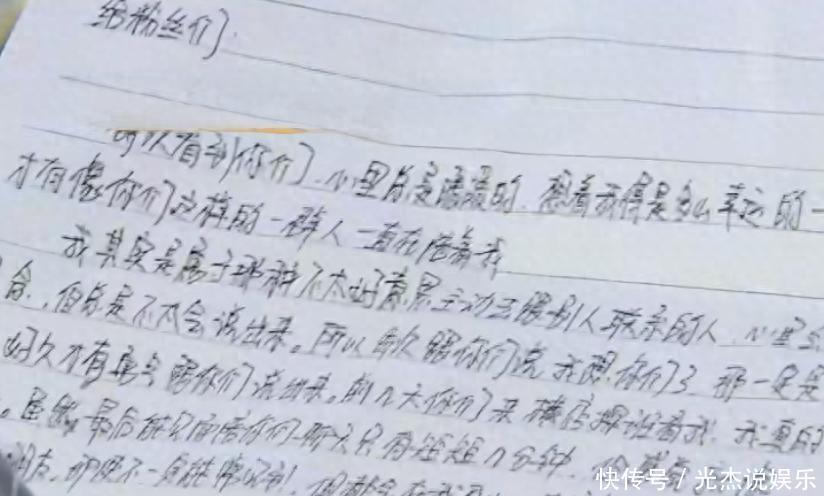 给粉丝们
可以看到你们心里总是暖暖的.想着我得是多么幸运的一
才有像你们这样的一群人一直在陪着我
我其实是属于那种不太好意思主动去跟别人联系的人.心里
但总是不太会说出来。所以每次跟你们说我想你们了那一定是
好久才有勇气跟你们说出来.前几天你们来横店探班看我.我真的
。虽然最后能见面陪你们聊天只有短短几分钟.
朋友.即使不一定能
快传号/光杰说娱乐